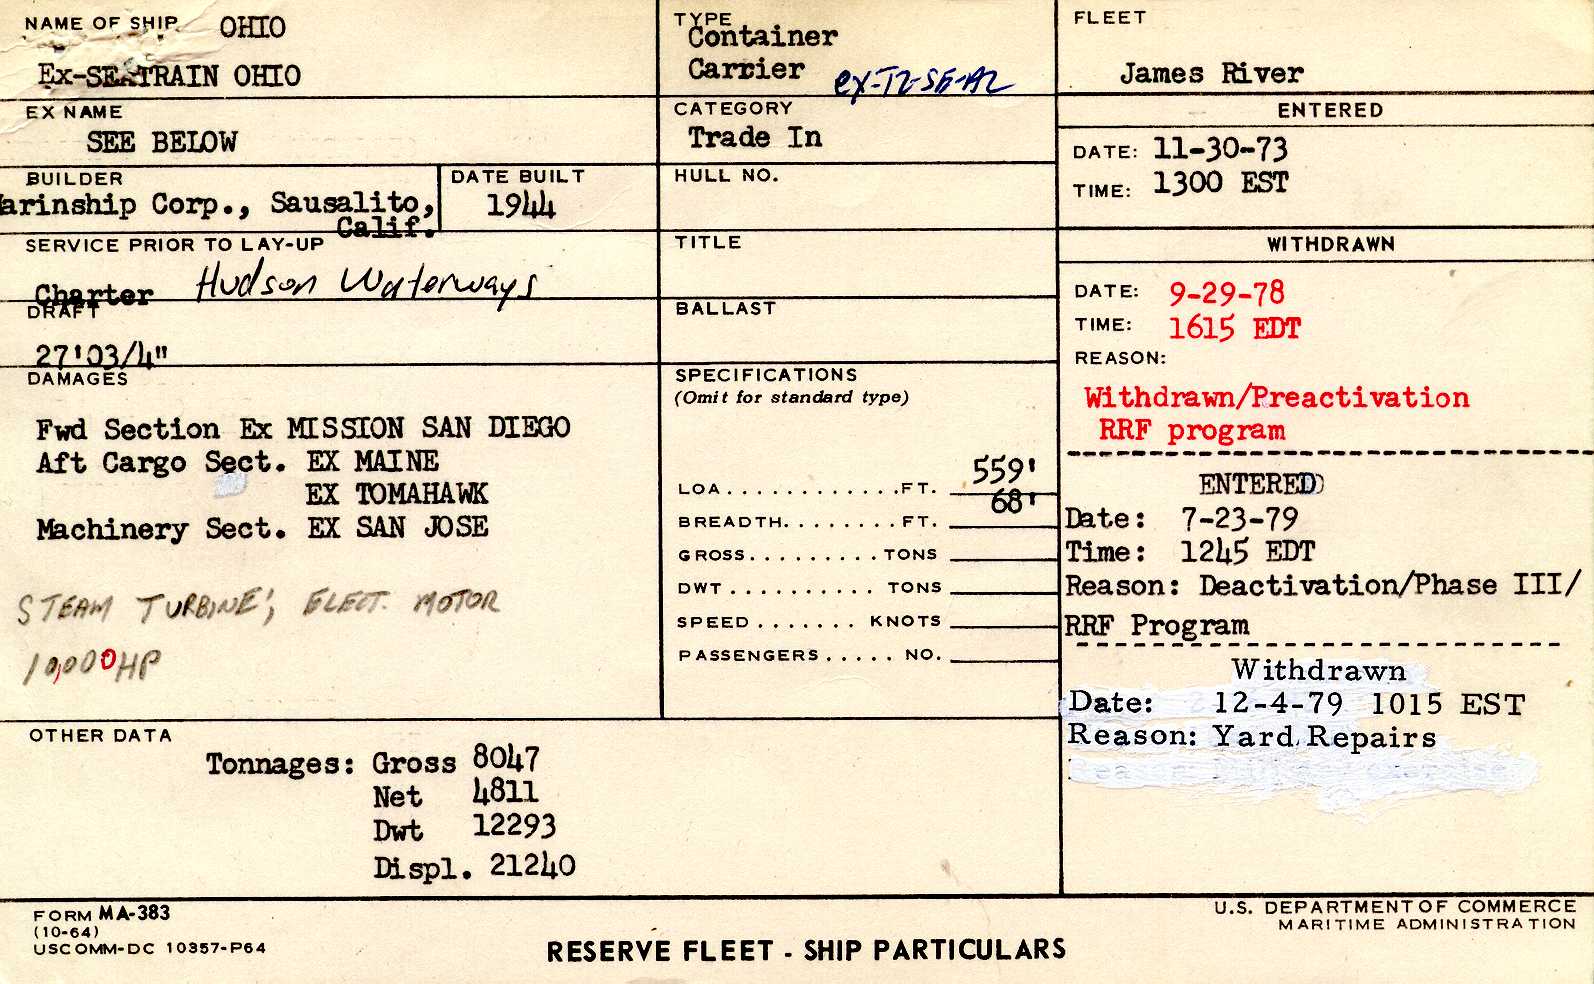 NAME OF SHIP OHIO
Ex-SEATRAIN OHIO
EX NAME
SEE BELOW
BUILDER
Marinship Corp., Sausalito,
Calif.
DATE BUILT
1944
SERVICE PRIOR TO LAY-UP
Charter Hudson Waterways
DRAFT
27'03/4"
DAMAGES
Fwd Section Ex MISSION SAN DIEGO
Aft Cargo Sect. EX MAINE
EX TOMAHAWK
Machinery Sect. EX SAN JOSE
STEAM TURBINE; ELECT. MOTOR
10,000HP
TYPE
Container
Carrier ex-T2-SE-A2
CATEGORY
Trade In
HULL NO.
TITLE
BALLAST
SPECIFICATIONS
(Omit for standard type)
LOA.............FT. 559'
BREADTH........FT. 68'
GROSS.........TONS
DWT.......... TONS
SPEED....... KNOTS
PASSENGERS..... NO.
FLEET
James River
ENTERED
DATE: 11-30-73
TIME: 1300 EST
WITHDRAWN
DATE: 9-29-78
TIME: 1615 EDT
REASON:
Withdrawn/Preactivation
RRF program
ENTERED
Date: 7-23-79
Time: 1245 EDT
Reason: Deactivation/Phase III/
RRF Program
Withdrawn
Date: 12-4-79 1015 EST
Reason: Yard Repairs
OTHER DATA
Tonnages: Gross 8047
Net 4811
Dwt 12293
Displ. 21240
FORM MA-383
(10-64)
USCOMM-DC 10357-P64
RESERVE FLEET - SHIP PARTICULARS
U.S. DEPARTMENT OF COMMERCE
MARITIME ADMINISTRATION